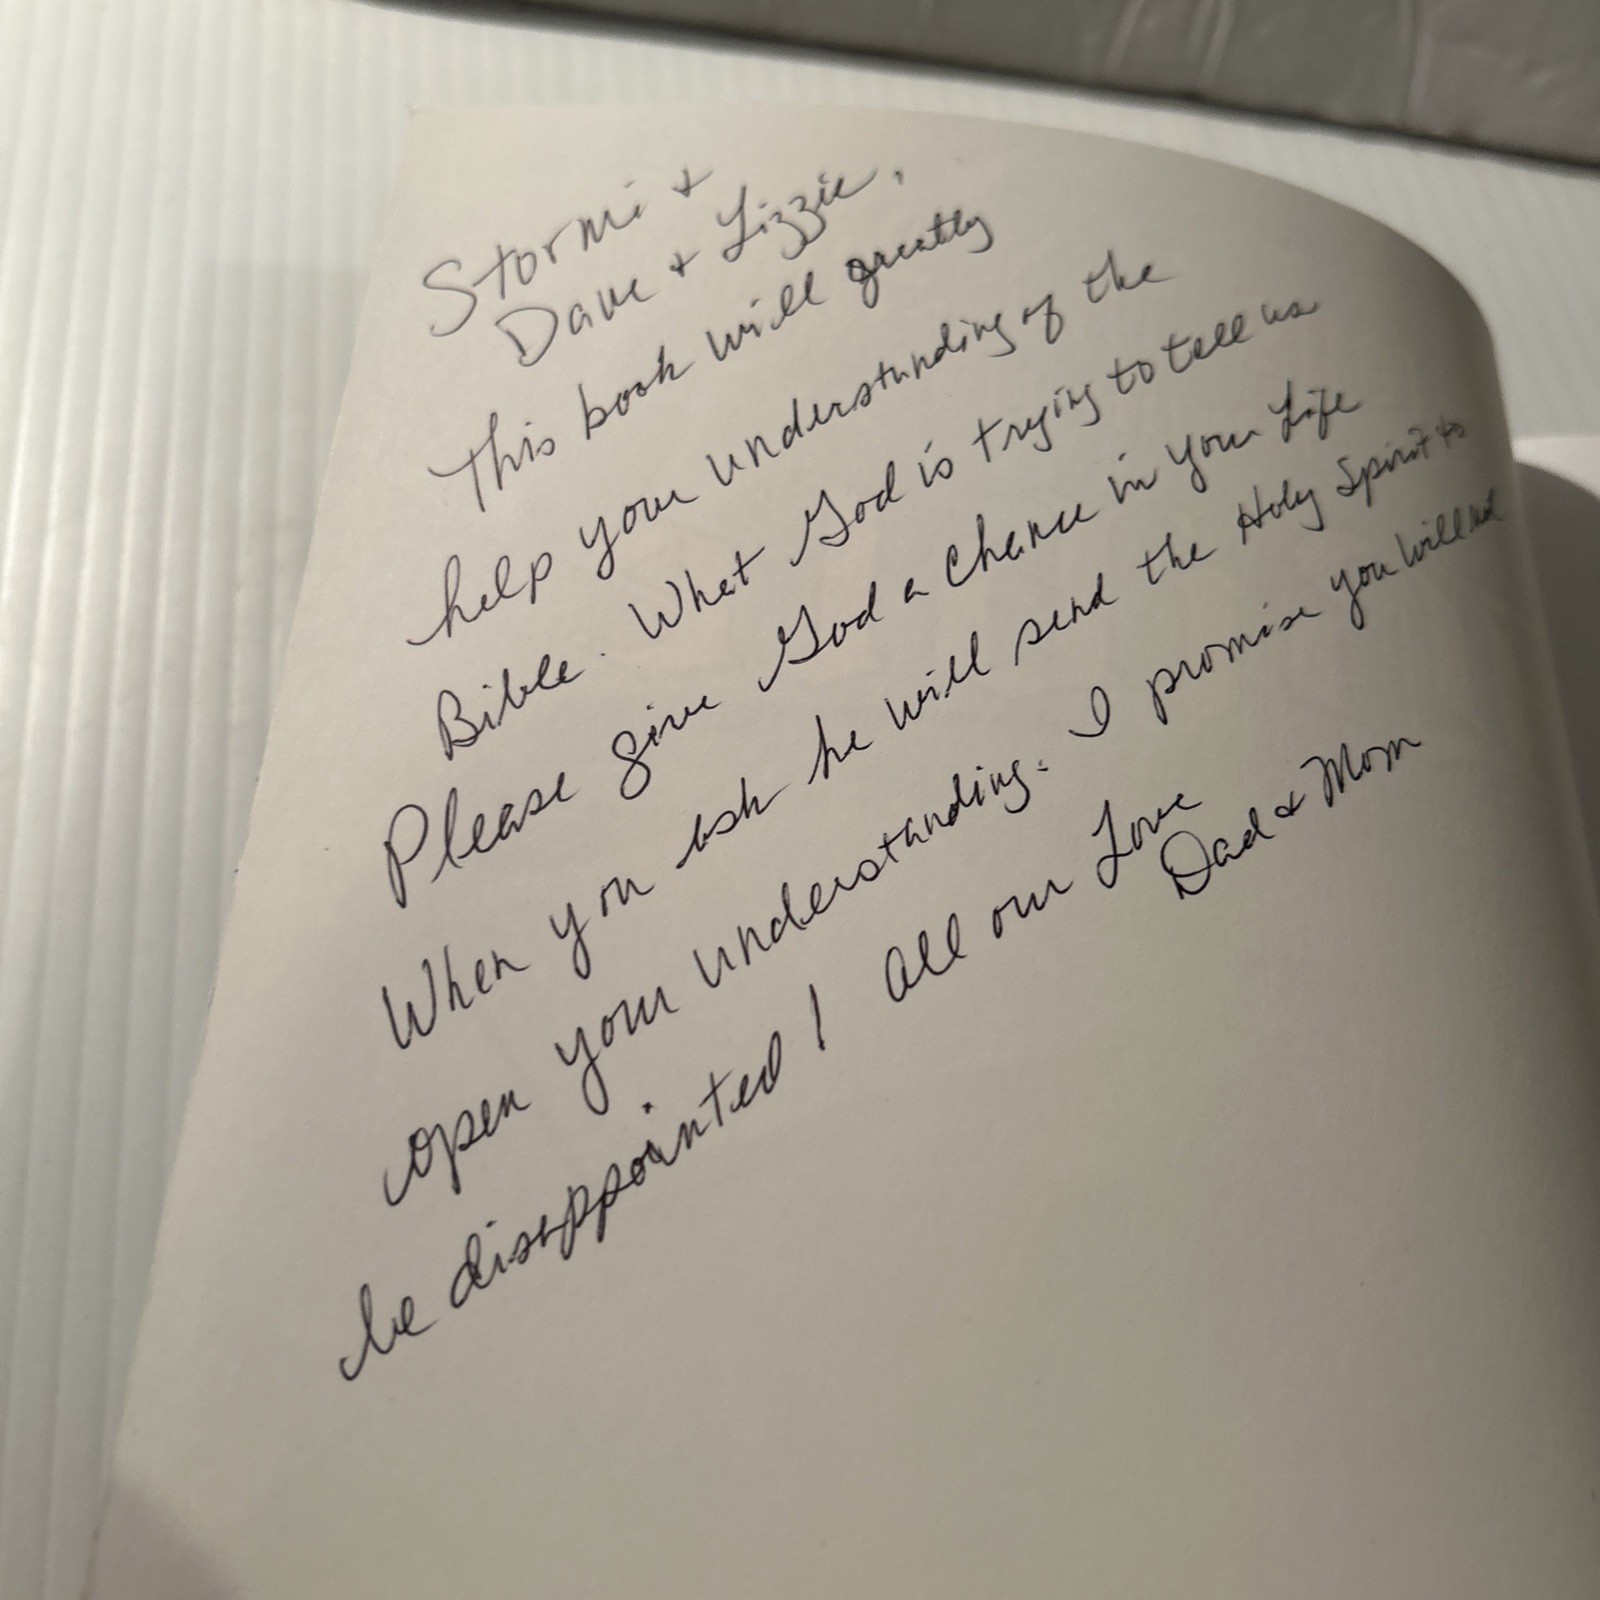 Stormi +
Dave + Lizzie,
This book will greatly
help your understanding of the
Bible. What God is trying to tell us
Please give God a chance in your Life
When you ask he will send the Holy Spirit to
open your understanding. I promise you will not
be disappointed! All our Love
Dad & Mom